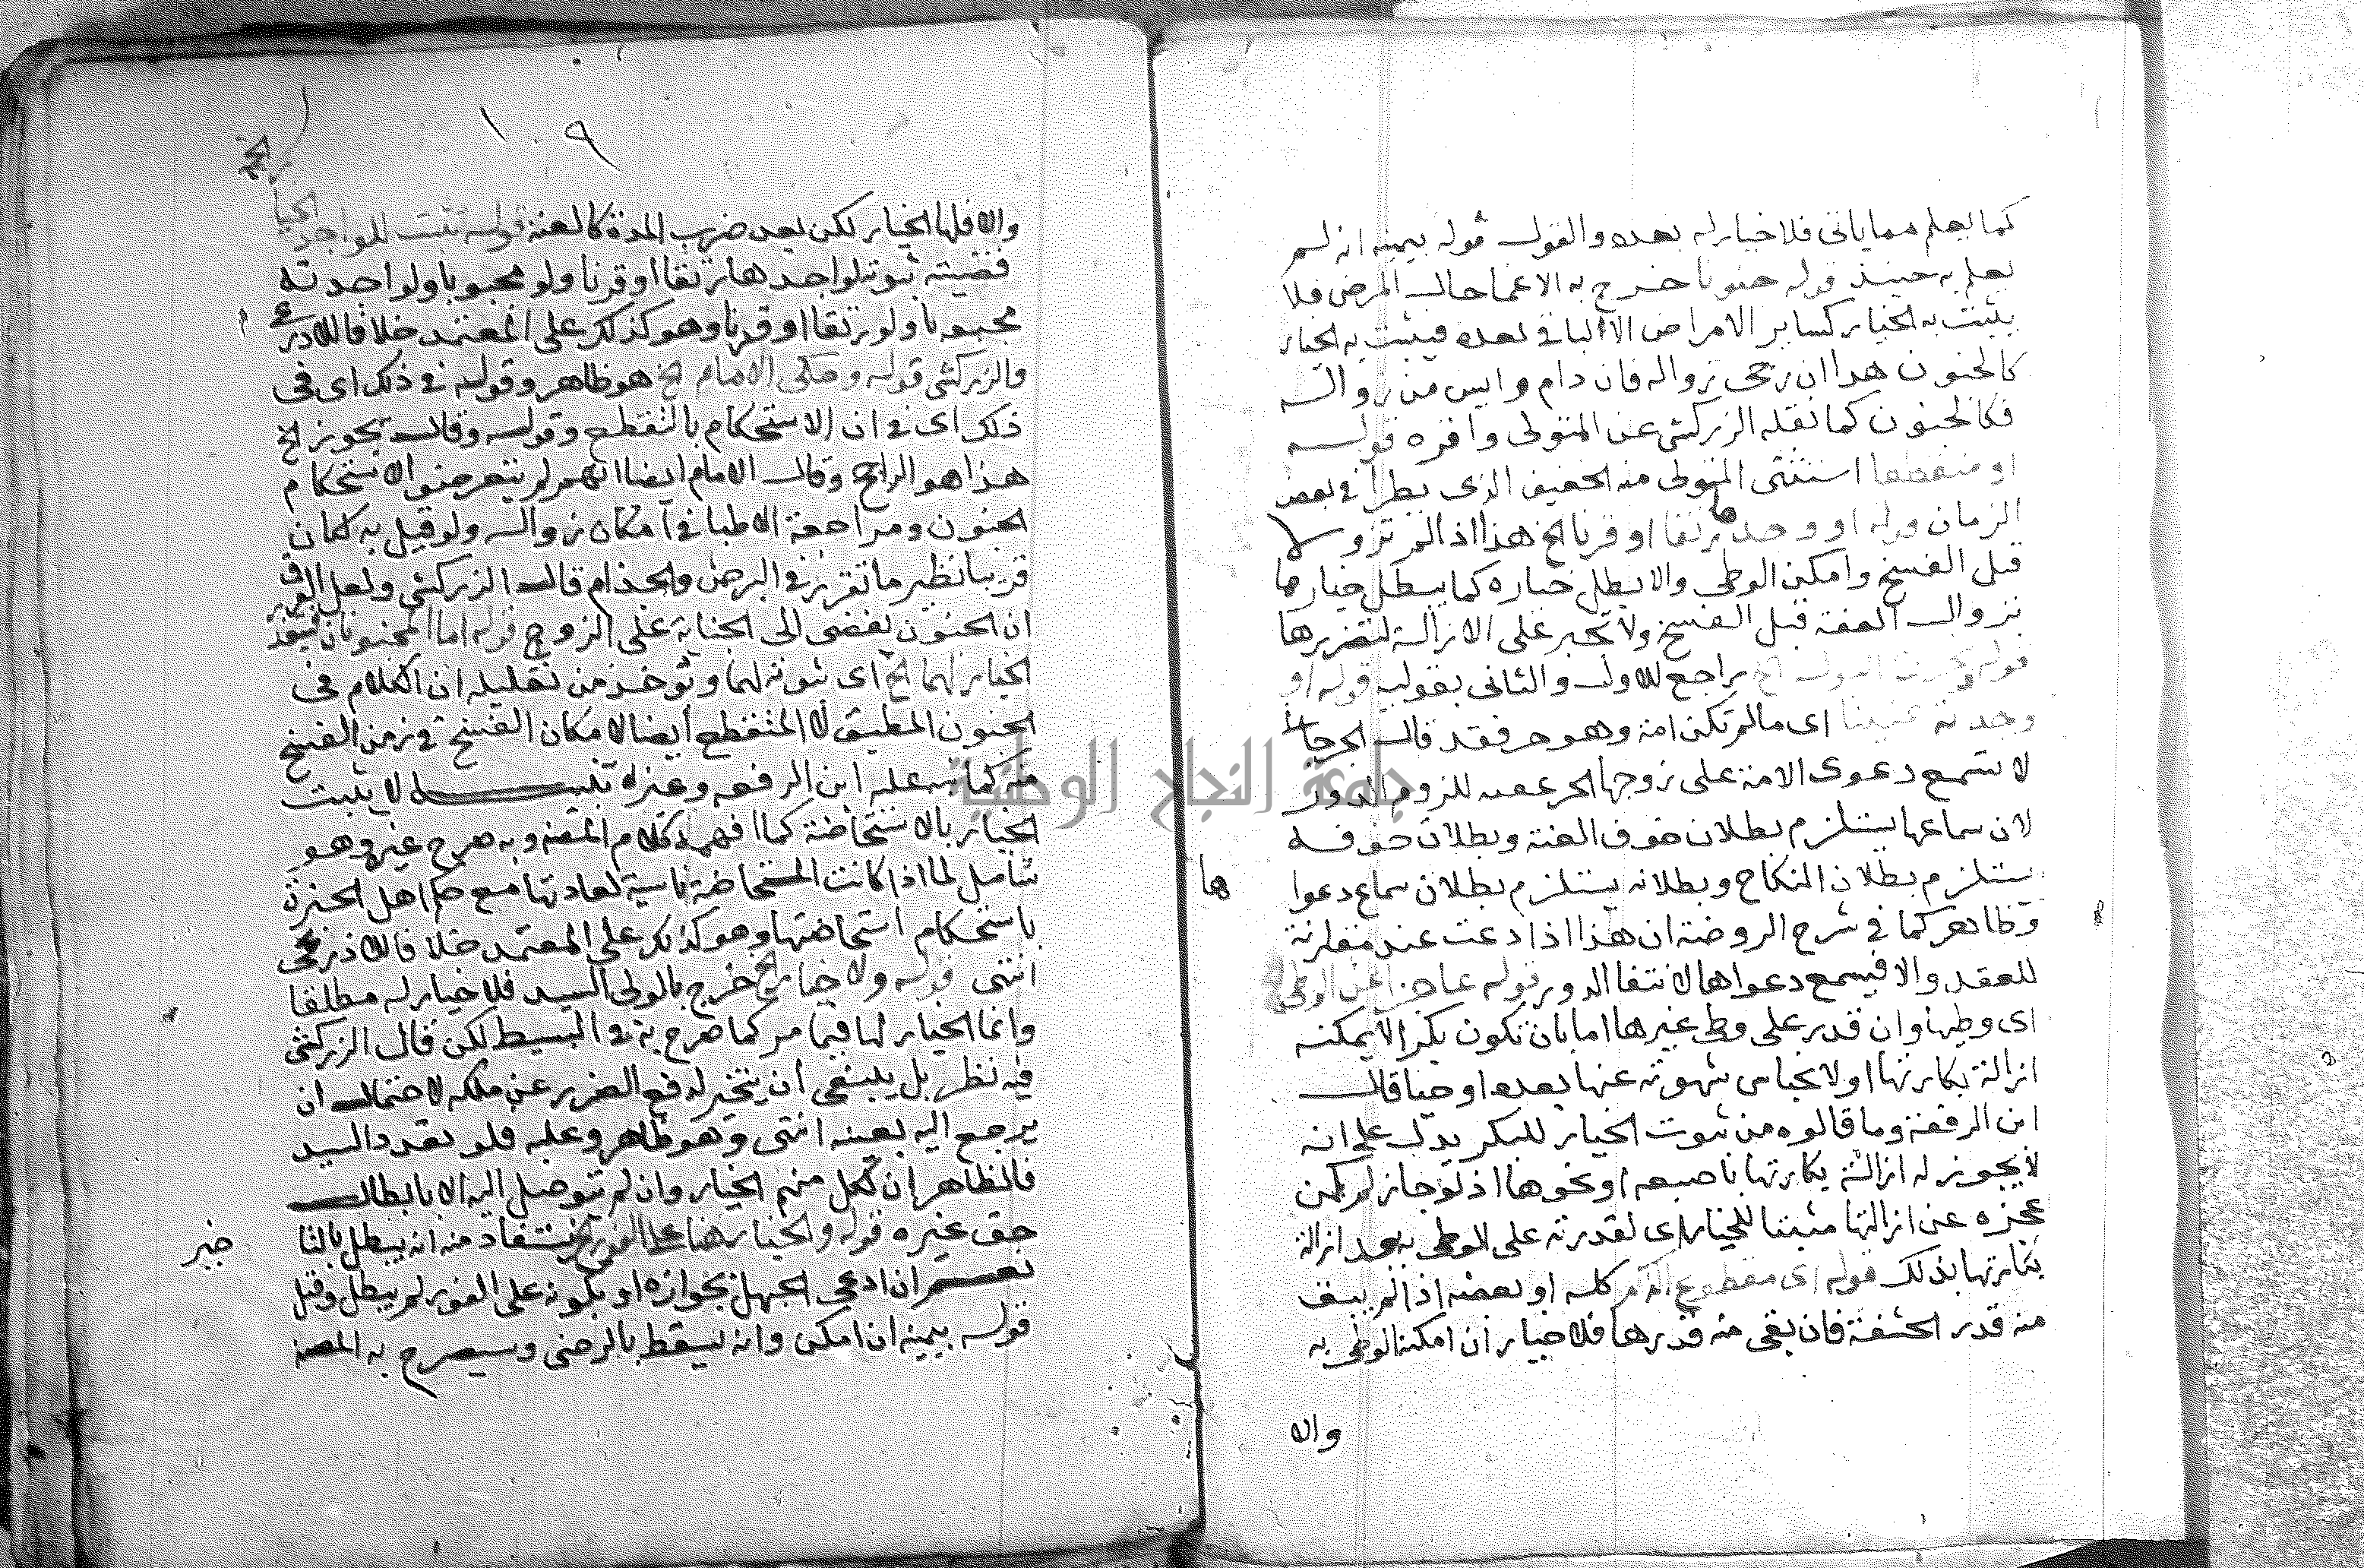 كما يعلم مما ياتى فلا خيار له بعده والقول قوله بيمينه انه لم
يعلم به حينئذ قوله جنونا خرج به الاغما حال المرض فلا
يثبت به الخيار كساير الامراض الا الباقى بعده فيثبت به الخيار
كالجنون هذا ان رجى زواله فان دام وايس من زواله
فكالجنون كما نقله الزركشى عن المتولى واقره قوله
او متقطعا استثنى المتولى منه الخفيف الذى يطرا فى بعض
الزمان قوله او وجدها رتقا او قرنا الخ هذا اذا لم تزولا
قبل الفسخ وامكن الوطى والا بطل خياره كما يبطل خيارها
بزوال العنة قبل الفسخ ولا تجبر على الازالة لتضررها
قوله الخ راجع للاول والثانى بقوليه قوله او
وجدته عنينا اى ما لم تكن امة وهو حر فقد قال الجرجانى
لا تسمع دعوى الامة على زوجها الحر عنته للزوم الدور
لان سماعها يستلزم بطلان خوف العنة وبطلان خوفه
يستلزم بطلان النكاح وبطلانه يستلزم بطلان سماع دعوا
ها
وظاهر كما فى شرح الروضة ان هذا اذا ادعت عنة مقارنة
للعقد والا فيسمع دعواها لانتفا الدور قوله عاجزا عن الوطى
اى وطيها وان قدر على وطى غيرها اما بان تكون بكرا لا يمكنه
ازالة بكارتها او لانحباس شهوته عنها بعدا او حيا قال
ابن الرفعة وما قالوه من ثبوت الخيار للبكر يدل على انه
لا يجوز له ازالة بكارتها باصبعه او نحوها اذ لو جاز لم يكن
عجزه عن ازالتها مثبتا للخيار اى لقدرته على الوطى بعد ازالة
بكارتها بذلك قوله اى مقطوع الذكر كله او بعضه اذا لم يبق
منه قدر الحشفة فان بقى منه قدرها فلا خيار ان امكنه الوطى به
والا
١٠٩
والا فلها الخيار لكن بعد ضرب المدة كالعنة قوله تثبت للواجد الخيار
قضيته ثبوته لواجدها رتقا او قرنا ولو مجبوبا ولواجدته
مجبوبا ولو رتقا او قرنا وهو كذلك على المعتمد خلافا للاذرعى
والزركشى قوله وحكى الامام الخ هو ظاهر وقوله فى ذلك اى فى
ذلك اى فى ان الاستحكام بالتقطع وقوله وقال يجوز الخ
هذا هو الراجح وقال الامام ايضا انهم لم يتعرضوا لاستحكام
الجنون ومراجعة الاطبا فى امكان زواله ولو قيل به لكان
قريبا نظير ما تقرر فى البرص والجذام قال الزركشى ولعل الفرق
ان الجنون يفضى الى الجناية على الزوج قوله اما المجنونان فيتعذر
الخيار لهما الخ اى ثبوته لهما ويوخذ من تعليله ان الكلام فى
الجنون المطبق لا المتقطع ايضا لامكان الفسخ فى زمن الفسخ
منه كما نبه عليه ابن الرفعه وغيره تنبيه لا يثبت
الخيار بالاستحاضة كما افهمه كلام المصنف وبه صرح غيره وهو
شامل لما اذا كانت المستحاضة ناسية لعادتها مع حكم اهل الخبرة
باستحكام استحاضتها وهو كذلك على المعتمد خلافا للاذرعى
انتهى قوله ولا خيار الخ خرج بالولى السيد فلا خيار له مطلقا
وانما الخيار لها فيما مر كما صرح به فى البسيط لكن قال الزركشى
فيه نظر بل ينبغى ان يتخير لدفع الضرر عن ملكه لاحتمال ان
يرجع اليه بعينه انتهى وهو ظاهر وعليه فلو تعدد السيد
فالظاهر ان لكل منهم الخيار وان لم يتوصل اليه الا بابطال
حق غيره قوله والخيار هنا على الفور الخ يستفاد منه انه يبطل بالتا
خير
نعم ان ادعى الجهل بجوازه او بكونه على الفور لم يبطل وقبل
قوله بيمينه ان امكن وانه يسقط بالرضى وسيصرح به المصنف